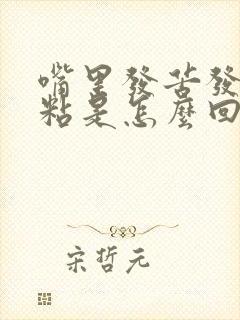 嘴里發苦發
粘是怎麼回
宋哲元